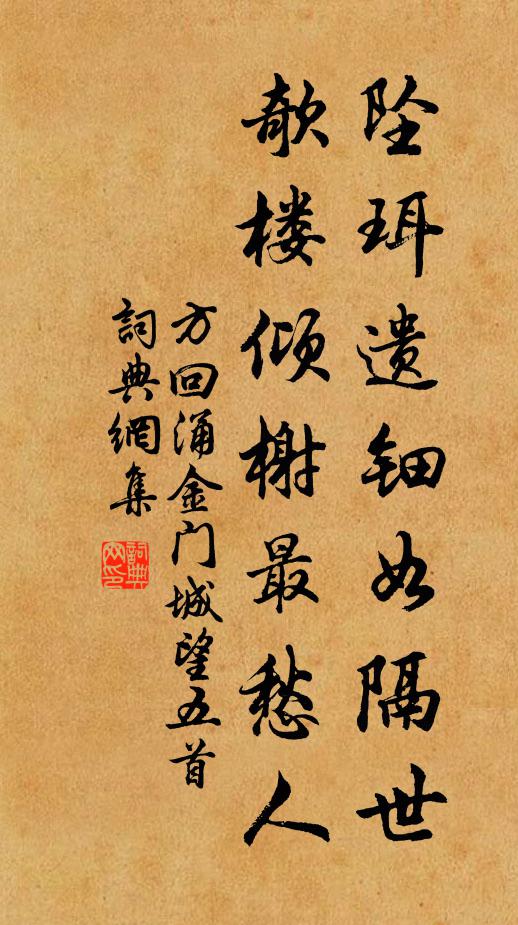 坠珥遗钿如隔世
欹楼倾榭最愁人
方回涌金门城望五首
詞典網集
詞典网印